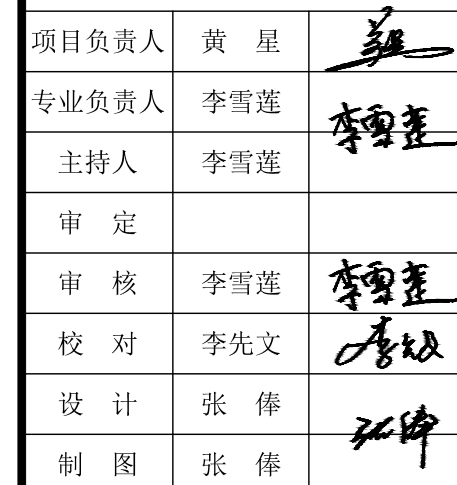 项目负责人 黄 星
专业负责人 李雪莲 李雪莲
主持人 李雪莲
审 定
审 核 李雪莲 李雪莲
校 对 李先文
设 计 张 俸 张俸
制 图 张 俸